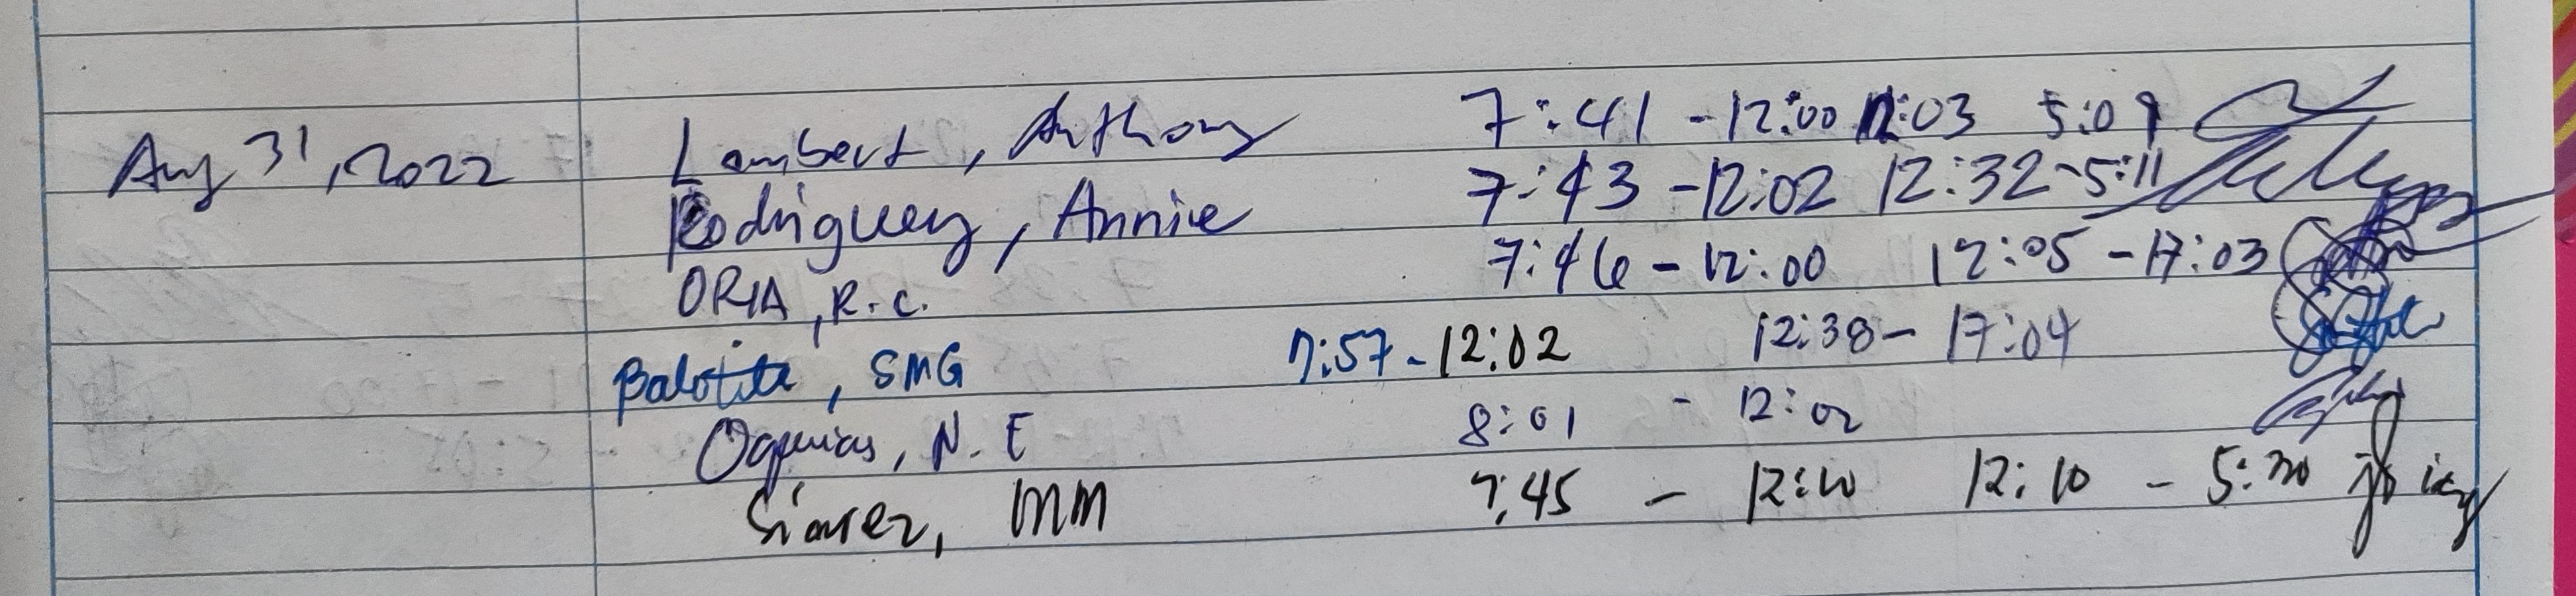 Aug 31, 2022 Lambert, Anthony 7:41 - 12:00 12:03 5:09
Rodriguez, Annie 7:43 - 12:02 12:32 - 5:11
ORIA, R.C. 7:46 - 12:00 12:05 - 17:03
Balotite, SMG 7:57 - 12:02 12:38 - 17:04
N.E 8:01 - 12:02
Siarez, MM 7:45 - 12:10 12:10 - 5:30